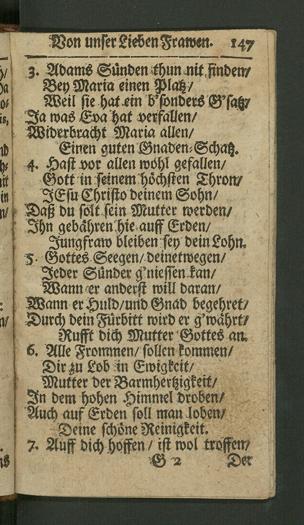 Von unser Lieben Frawen. 147
3. Adams Sünden thun nit finden/
Bey Maria einen Platz/
Weil sie hat ein b'sonders G'satz/
Ja was Eva hat verfallen/
Widerbracht Maria allen/
Einen guten Gnaden-Schatz.
4. Hast vor allen wohl gefallen/
Gott in seinem höchsten Thron/
JEsu Christo deinem Sohn/
Daß du solt sein Mutter werden/
Ihn gebähren hie auff Erden/
Jungfraw bleiben sey dein Lohn.
5. Gottes Seegen/ deinetwegen/
Jeder Sünder g'niessen kan/
Wann er anderst will daran/
Wann er Huld/ und Gnad begehret/
Durch dein Fürbitt wird er g'währt/
Rufft dich Mutter Gottes an.
6. Alle Frommen/ sollen kommen/
Dir zu Lob in Ewigkeit/
Mutter der Barmhertzigkeit/
In dem hohen Himmel droben/
Auch auf Erden soll man loben/
Deine schöne Reinigkeit.
7. Auff dich hoffen/ ist wol troffen/
G 2 Der